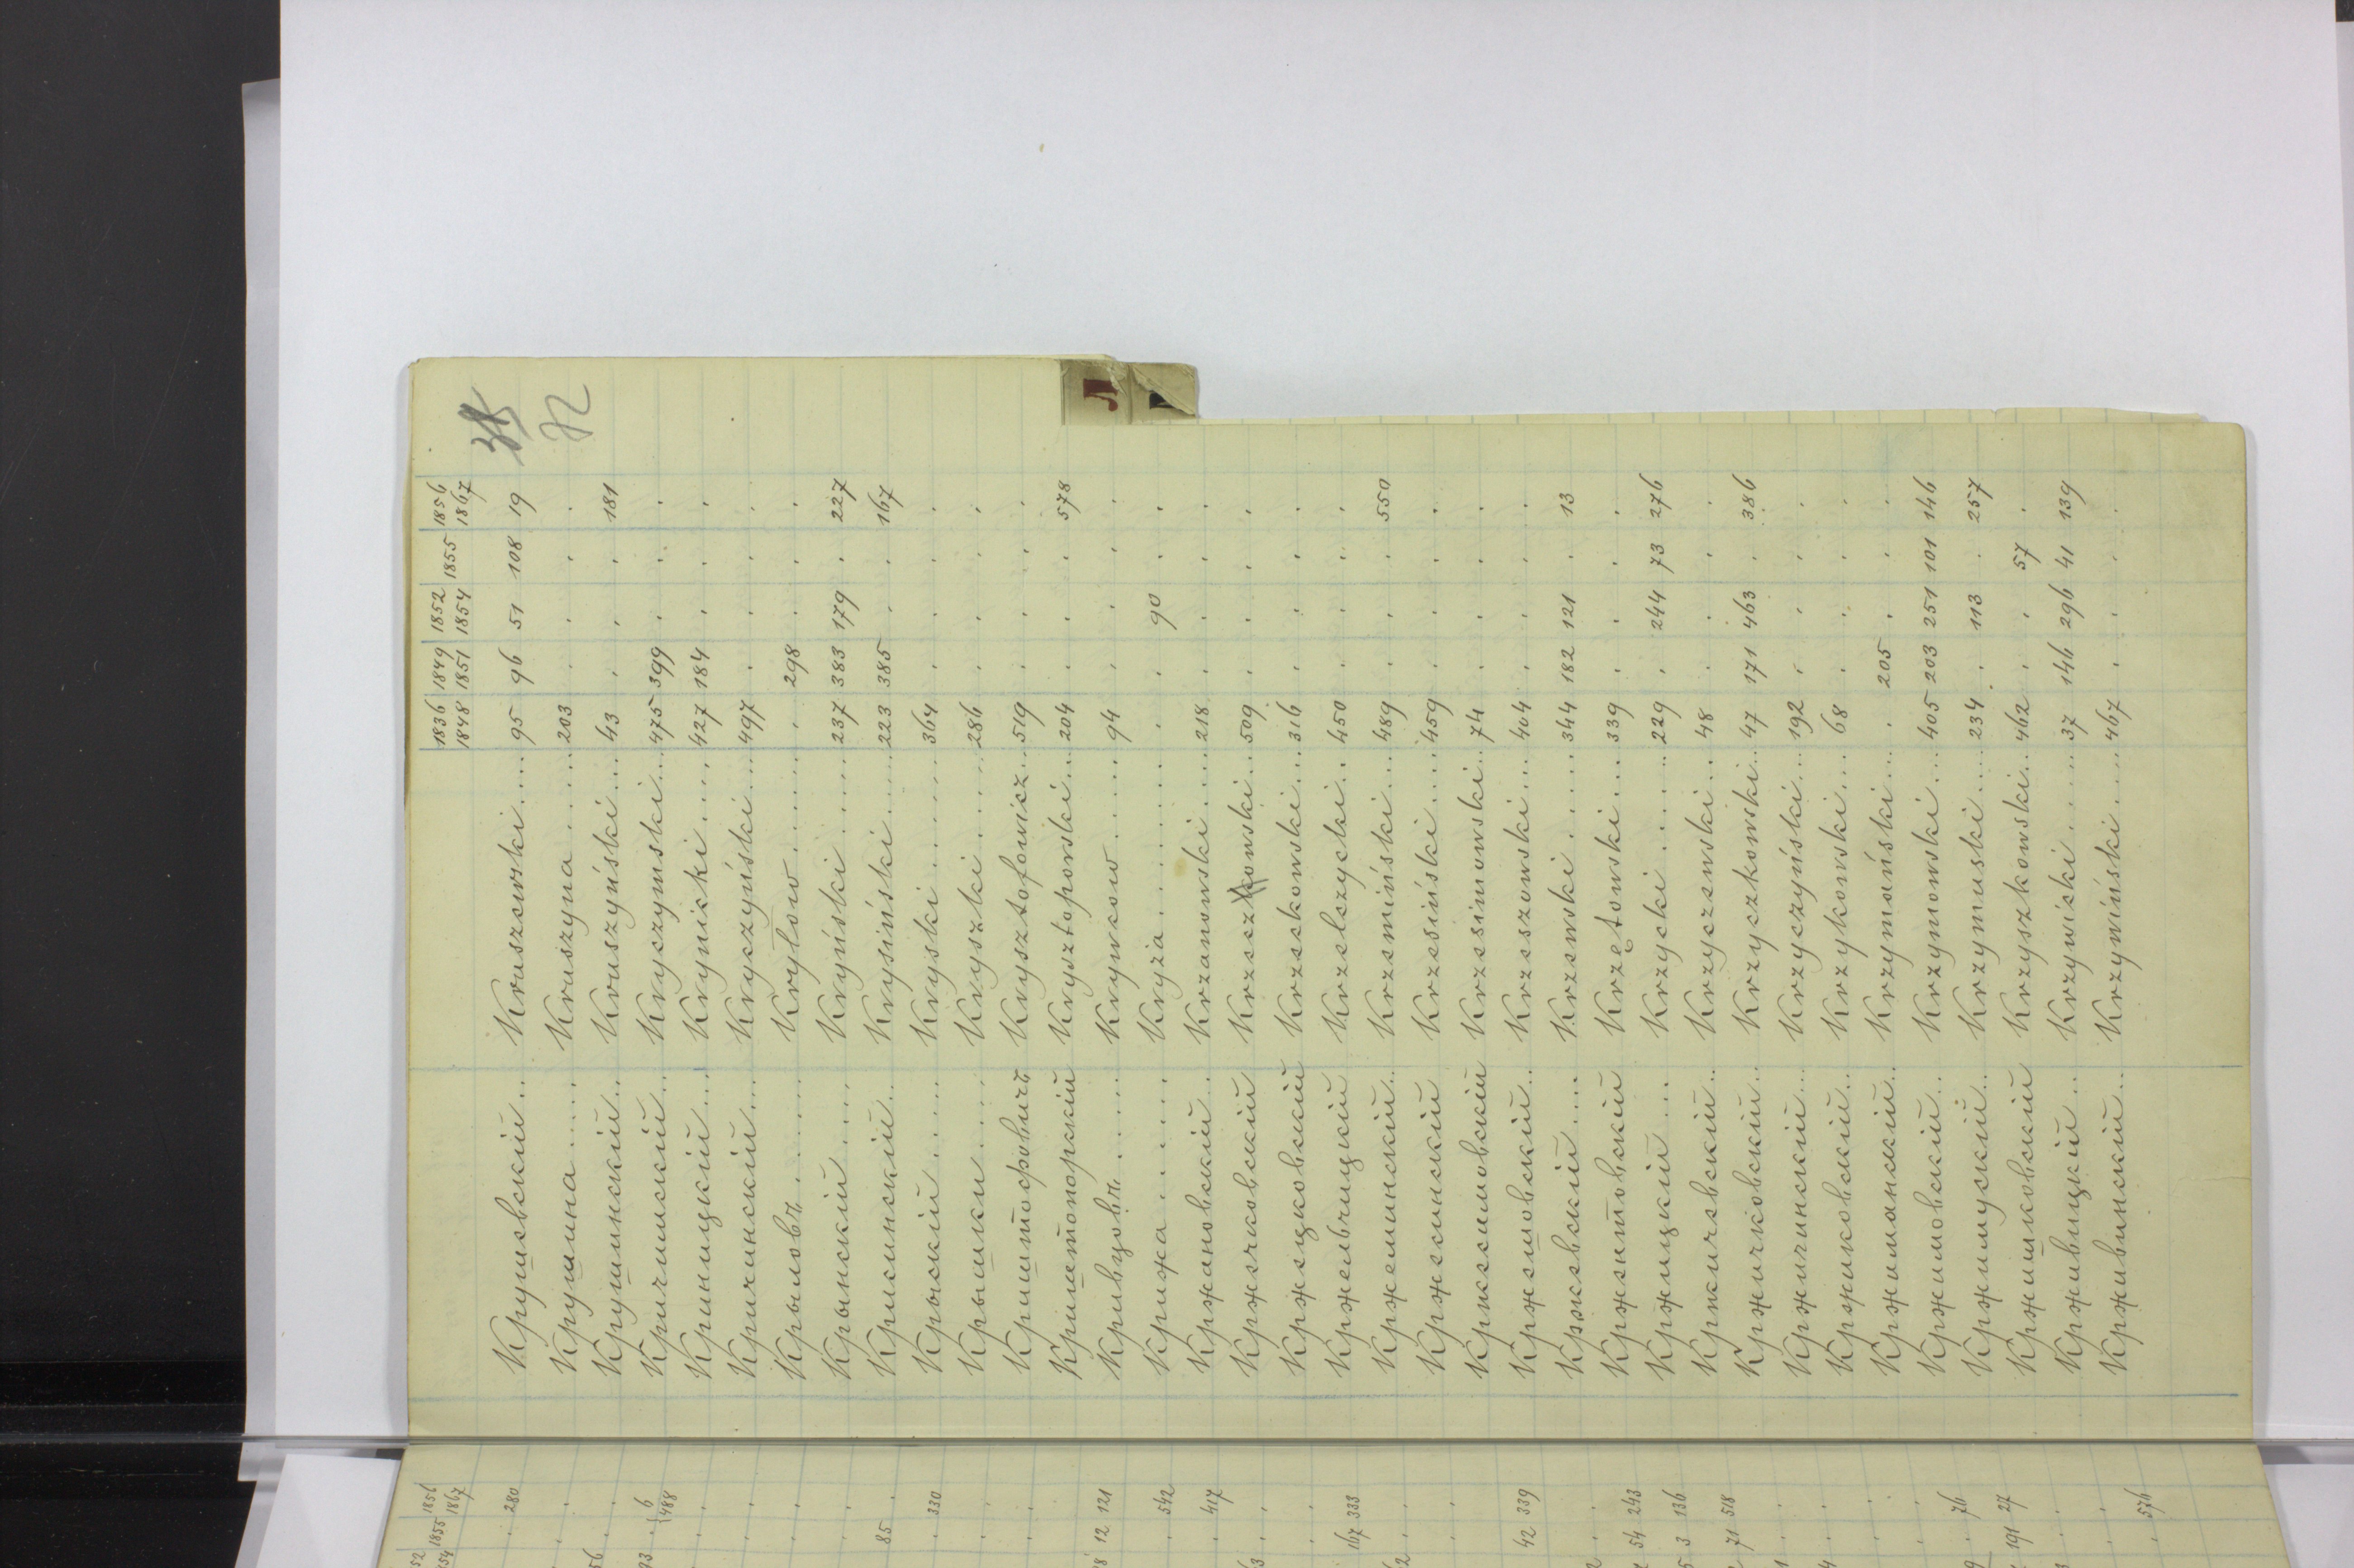 1836 1848 | 1849 1851 | 1852 1854 | 1855 | 1856 1867
Крушевскій.. Kruszewski.... 95 96 51 108 19
Крушина..... Kruszyna..... 203 . . . .
Крушинскій.. Kruszyński.... 43 . . . 181
Кричимскій.. Kryczymski... 475 399 . . .
Криницкій... Krynicki.... 427 184 . . .
Кричинскій... Kryczyński.... 497 . . . .
Крыловъ...... Kryłow...... . 298 . . .
Крынскій.... Kryński..... 237 383 179 . 227
Крисинскій.. Krysiński..... 223 385 . . 167
Крыскій..... Kryski....... 364 . . . .
Крышки..... Kryszki...... 286 . . . .
Криштофовичъ Krysztofowicz... 519 . . . .
Криштопорскій Krysztoporski... 204 . . . 578
Кривцовъ..... Krywcow..... 94 . . . .
Крижа...... Kryża........ . . 90 . .
Кржановскій.. Krzanowski.... 218 . . . .
Кржечковскій Krzeczkowski... 509 . . . .
Кржецковскій Krzeckowski.... 316 . . . .
Кржельчицкій Krzelczycki... 450 . . . .
Кржеминскій.. Krzemiński.... 489 . . . 550
Кржесинскій Krzesiński.... 459 . . . .
Кржесимовскій Krzesimowski... 74 . . . .
Кржешовскій.. Krzeszowski.... 404 . . . .
Кржевскій.... Krzewski..... 344 182 121 . 13
Кржентовскій Krzętowski.... 339 . . . .
Кржицкій.... Krzycki...... 229 . 244 73 276
Кржичевскій.. Krzyczewski... 48 . . . .
Кржичковскій.. Krzyczkowski.. 47 171 463 . 386
Кржичинскій.... Krzyczyński... 192 . . . .
Кржиковскій... Krzykowski.... 68 . . . .
Кржиманскій.. Krzymański.... . 205 . . .
Кржимовскій... Krzymowski.... 405 203 251 101 146
Кржимускій... Krzymuski.... 234 . 113 . 257
Кржишковскій Krzyszkowski.. 462 . . 57 .
Крживицкій... Krzywicki..... 37 146 296 41 139
Крживинскій... Krzywiński.... 467 . . . .
Л
1855 1856 1867
280
6
488
85
330
12 121
542
417
167 333
42 339
54 243
3 136
71 518
76
191 27
576